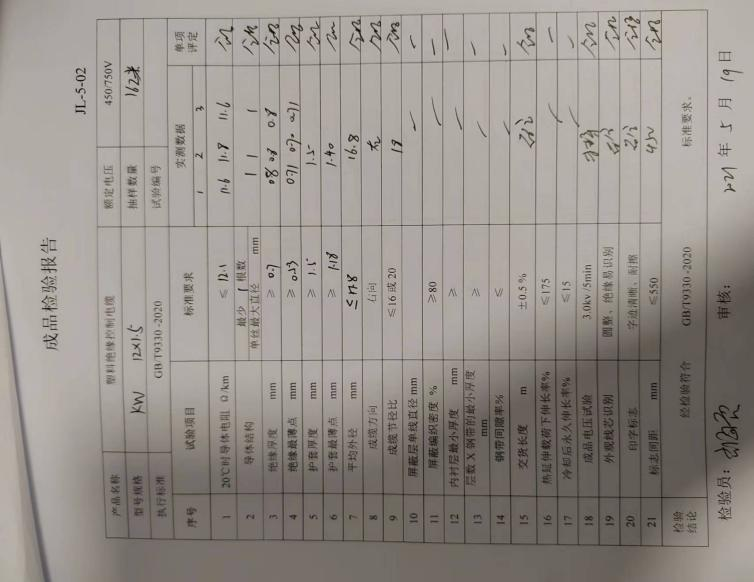 成品检验报告
JL-5-02
产品名称 塑料绝缘控制电缆 额定电压 450/750V
型号规格 12×1.5 抽样数量 162米
执行标准 GB/T9330-2020 试验编号
序号 试验项目 标准要求 实测数据 单项评定
1 2 3
1 20℃时导体电阻 Ω/km ≤ 12.1 11.6 11.8 11.6
2 导体结构 最少 1 根数 单丝最大直径 mm 1 1 1
3 绝缘厚度 mm ≥ 0.7 0.8 0.8 0.8
4 绝缘最薄点 mm ≥ 0.53 0.71 0.70 0.71
5 护套厚度 mm ≥ 1.5 1.5
6 护套最薄点 mm ≥ 1.18 1.40
7 平均外径 mm ≤17.8 16.8
8 成缆方向 右向 右
9 成缆节径比 ≤16或20 18
10 屏蔽层单线直径 mm
11 屏蔽编织密度 % ≥80
12 内衬层最小厚度 mm ≥
13 层数 X 钢带的最小厚度 mm ≥
14 钢带间隙率% ≤
15 交货长度 m ±0.5 %
16 热延伸载荷下伸长率% ≤175
17 冷却后永久伸长率% ≤15
18 成品电压试验 3.0kv /5min
19 外观线芯识别 圆整、绝缘易识别
20 印字标志 字迹清晰、耐擦
21 标志间距 mm ≤550 450
检验结论 经检验符合 GB/T9330-2020 标准要求。
检验员： 审核： 2021 年 5 月 19 日